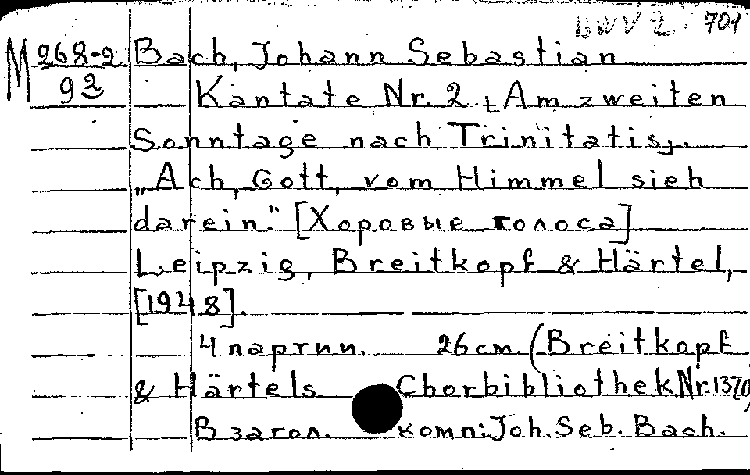 BWV 2. 701
M 268-2 Bach, Johann Sebastian
92 Kantate Nr. 2 [Am zweiten
Sonntage nach Trinitatis].
„Ach, Gott, vom Himmel sieh
darein." [Хоровые голоса]
Leipzig, Breitkopf & Härtel,
[1948].
4 партии. 26 cm (Breitkopf
& Härtels Chorbibliothek Nr.
В загол. комп: Joh. Seb. Bach.